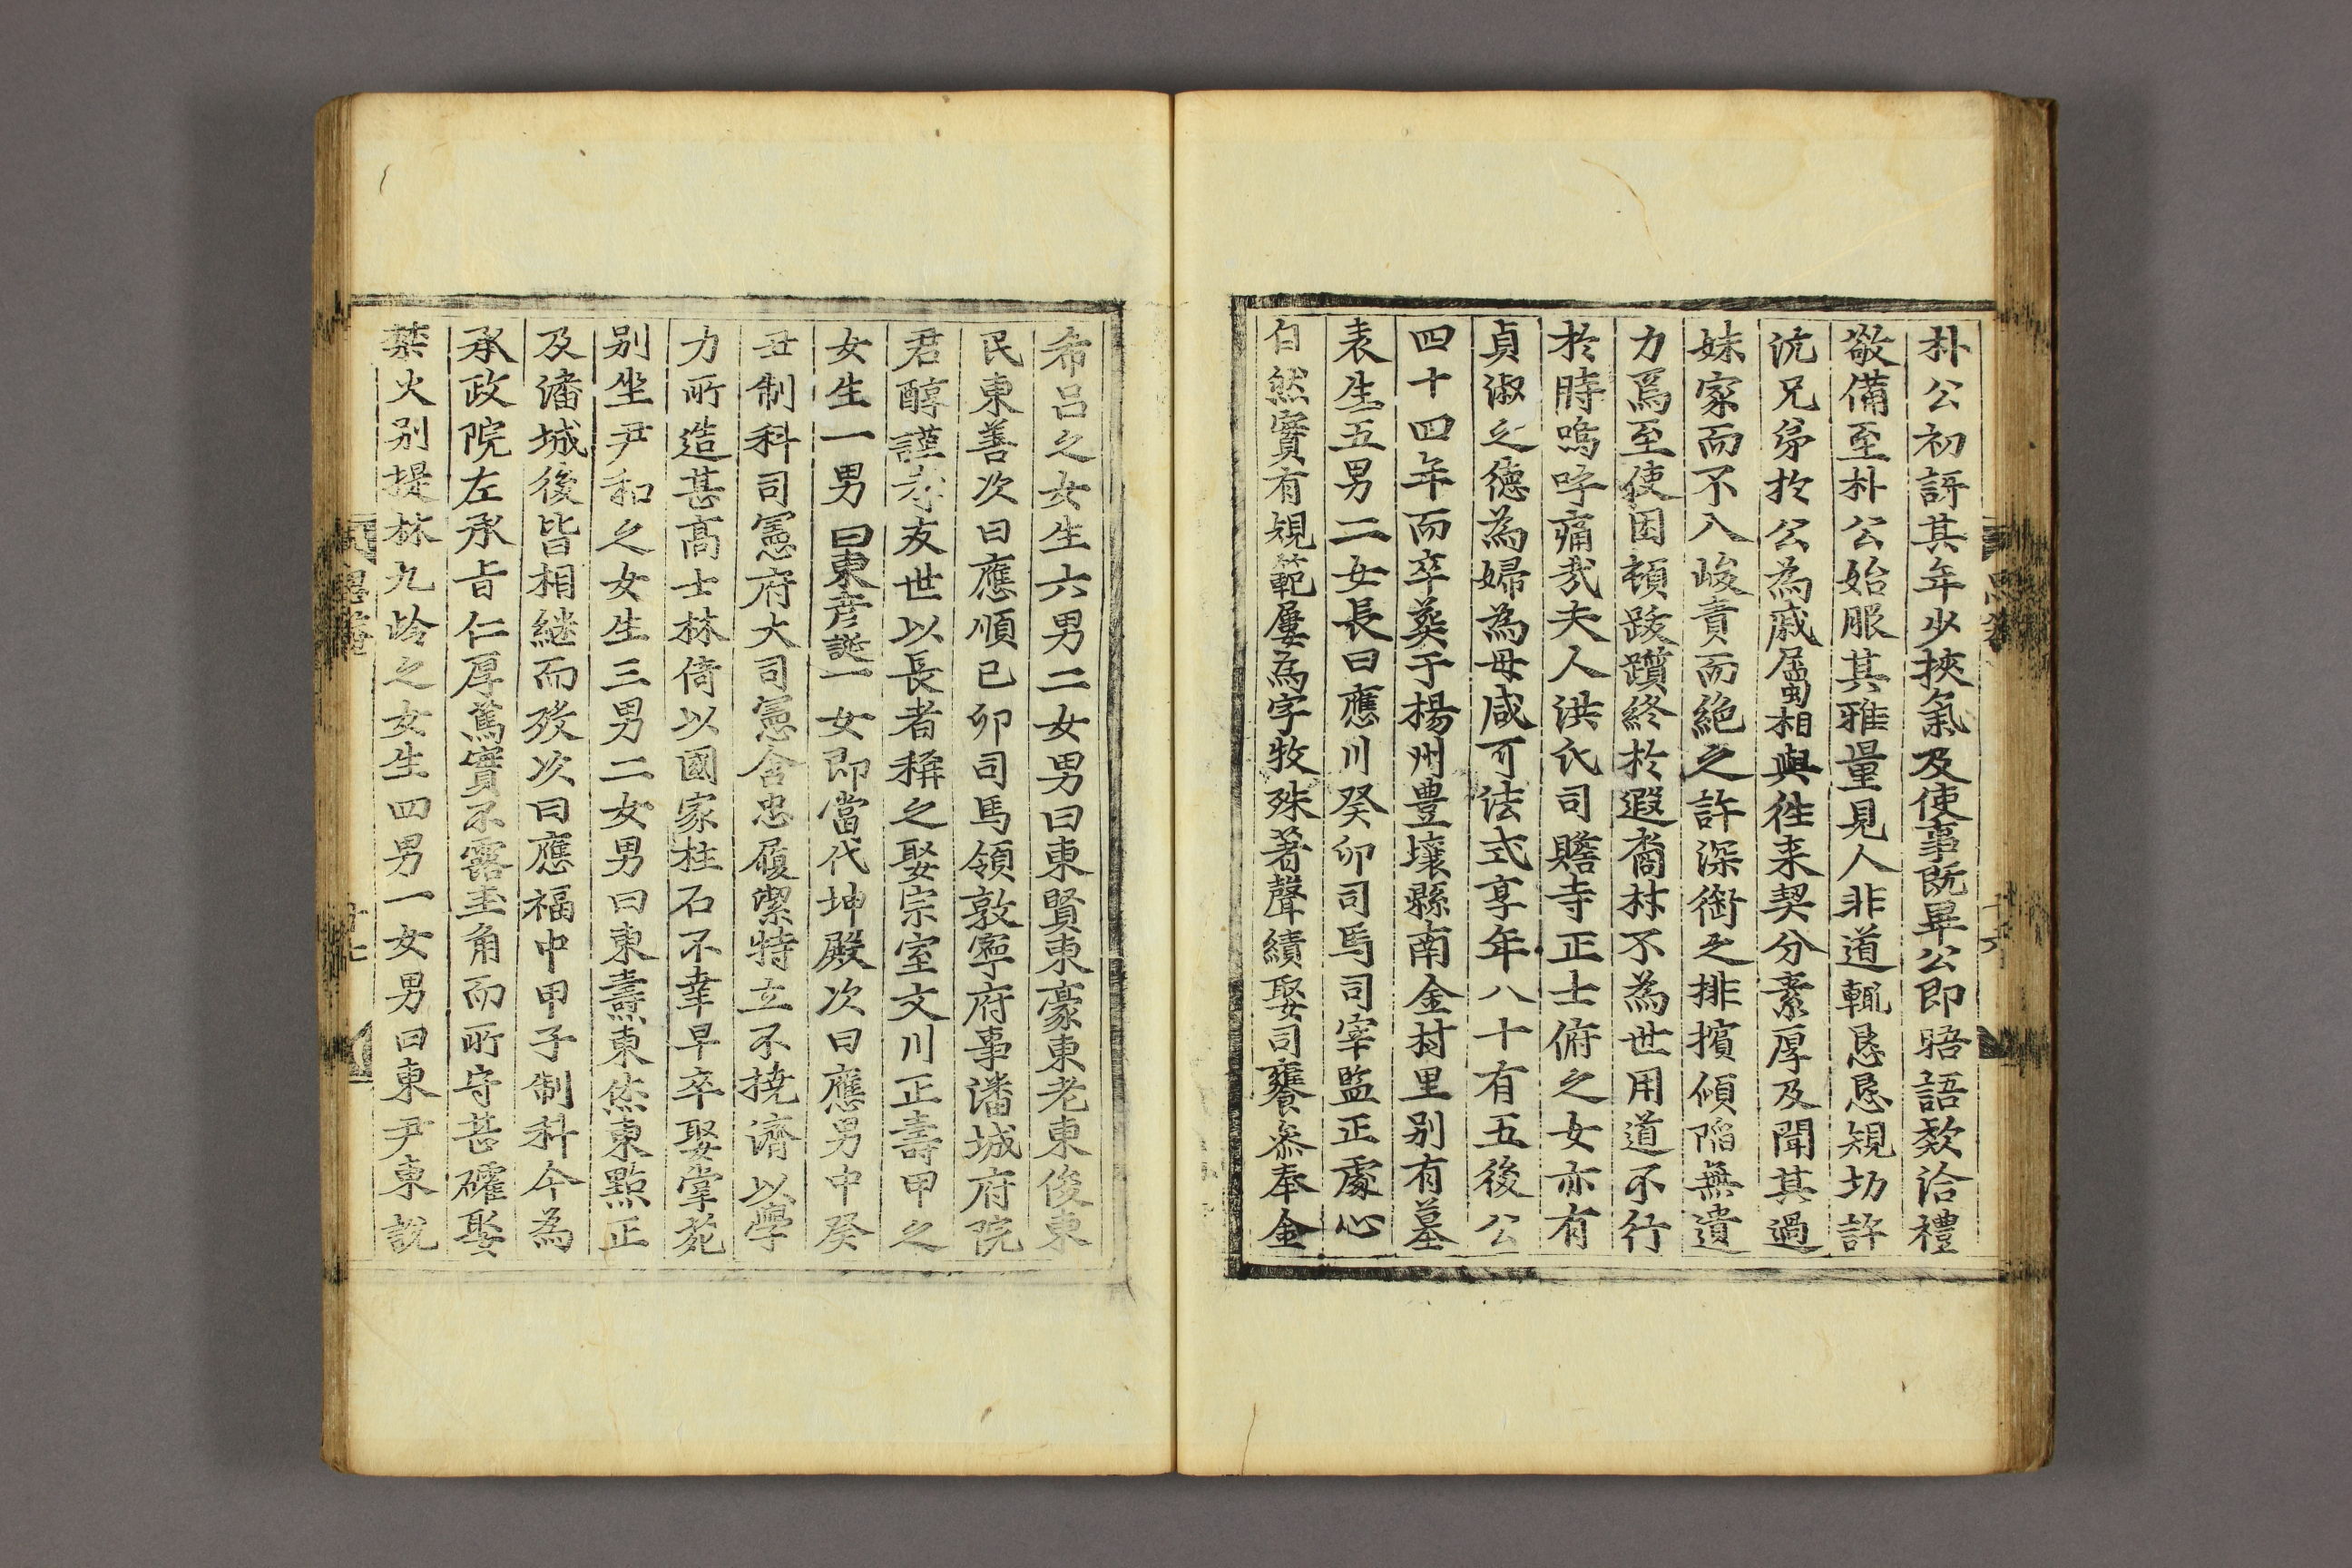 朴公初訝其年少挾氣及使事旣畢公即晤語欵洽禮
敬備至朴公始服其雅量見人非道輒恳恳規切許
沆兄弟於公爲戚屬相與徃来契分素厚及聞其過
妹家而不入峻責而絶之許深銜之排擯傾陷無遺
力焉至使困頓跋躓終於遐裔材不為世用道不行
於時嗚呼痛哉夫人洪氏司贍寺正士俯之女亦有
貞淑之德為婦為母咸可法式享年八十有五後公
四十四年而卒葬于楊州豊壤縣南金村里别有墓
表生五男二女長曰應川癸卯司馬司宰監正處心
白然實有規範屢為字牧殊著聲績娶司饔叅奉金
希呂之女生六男二女男曰東賢東豪東老東俊東
民東善次曰應順已卯司馬領敦寧府事潘城府院
君醇謹孝友世以長者稱之娶宗室文川正壽甲之
女生一男曰東彦誕一女即當代坤殿次曰應男中癸
丑制科司憲府大司憲含忠履潔特立不撓濟以學
力所造甚髙士林倚以國家柱石不幸早卒娶掌苑
别坐尹和之女生三男二女男曰東燾東烋東點正
及潘城後皆相継而歿次曰應福中甲子制科今為
承政院左承旨仁厚篤實不露圭角而所守甚確娶
禁火别提林九岭之女生四男一女男曰東尹東說